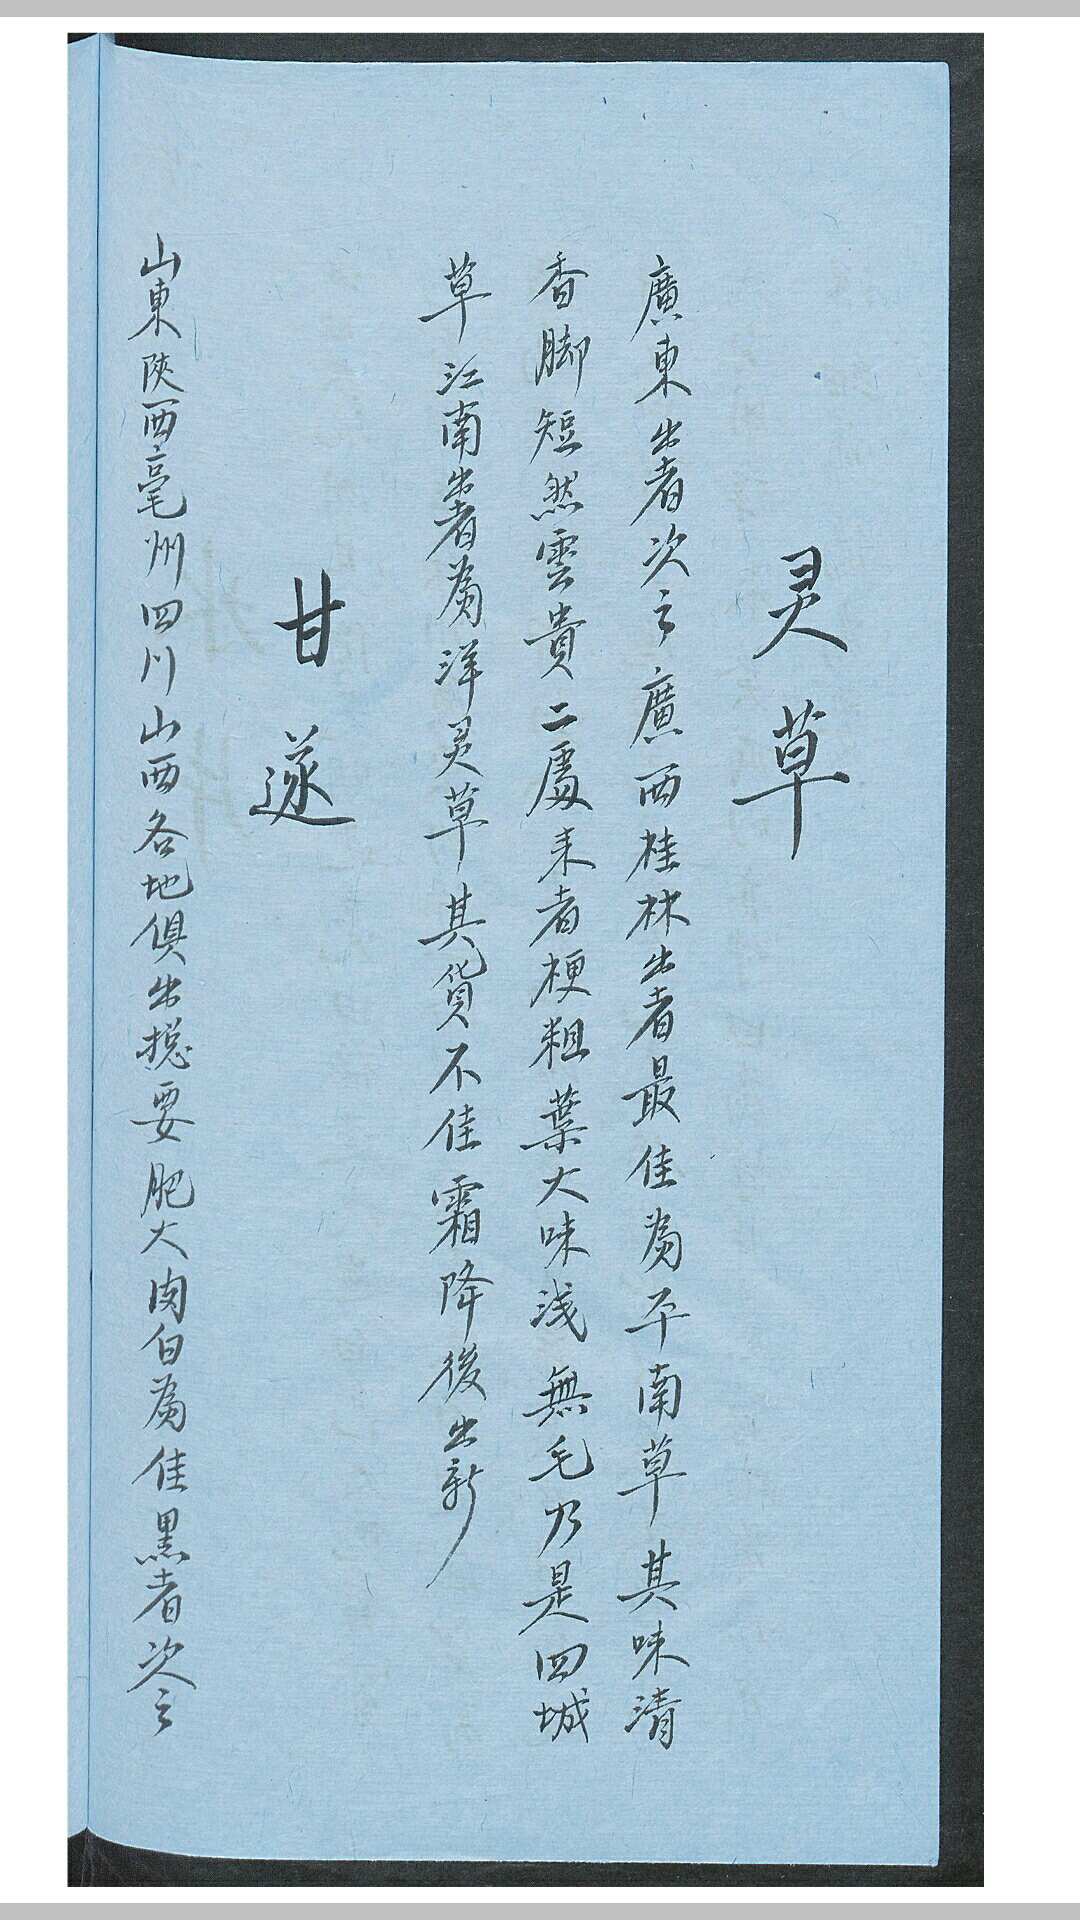 灵草
廣東出者次之廣西桂林出者最佳為平南草其味清
香脚短然雲貴二處来者梗粗葉大味浅無毛乃是四城
草江南出者為洋灵草其貨不佳霜降後出新
甘遂
山東陝西亳州四川山西各地俱出揔要肥大肉白為佳黑者次之